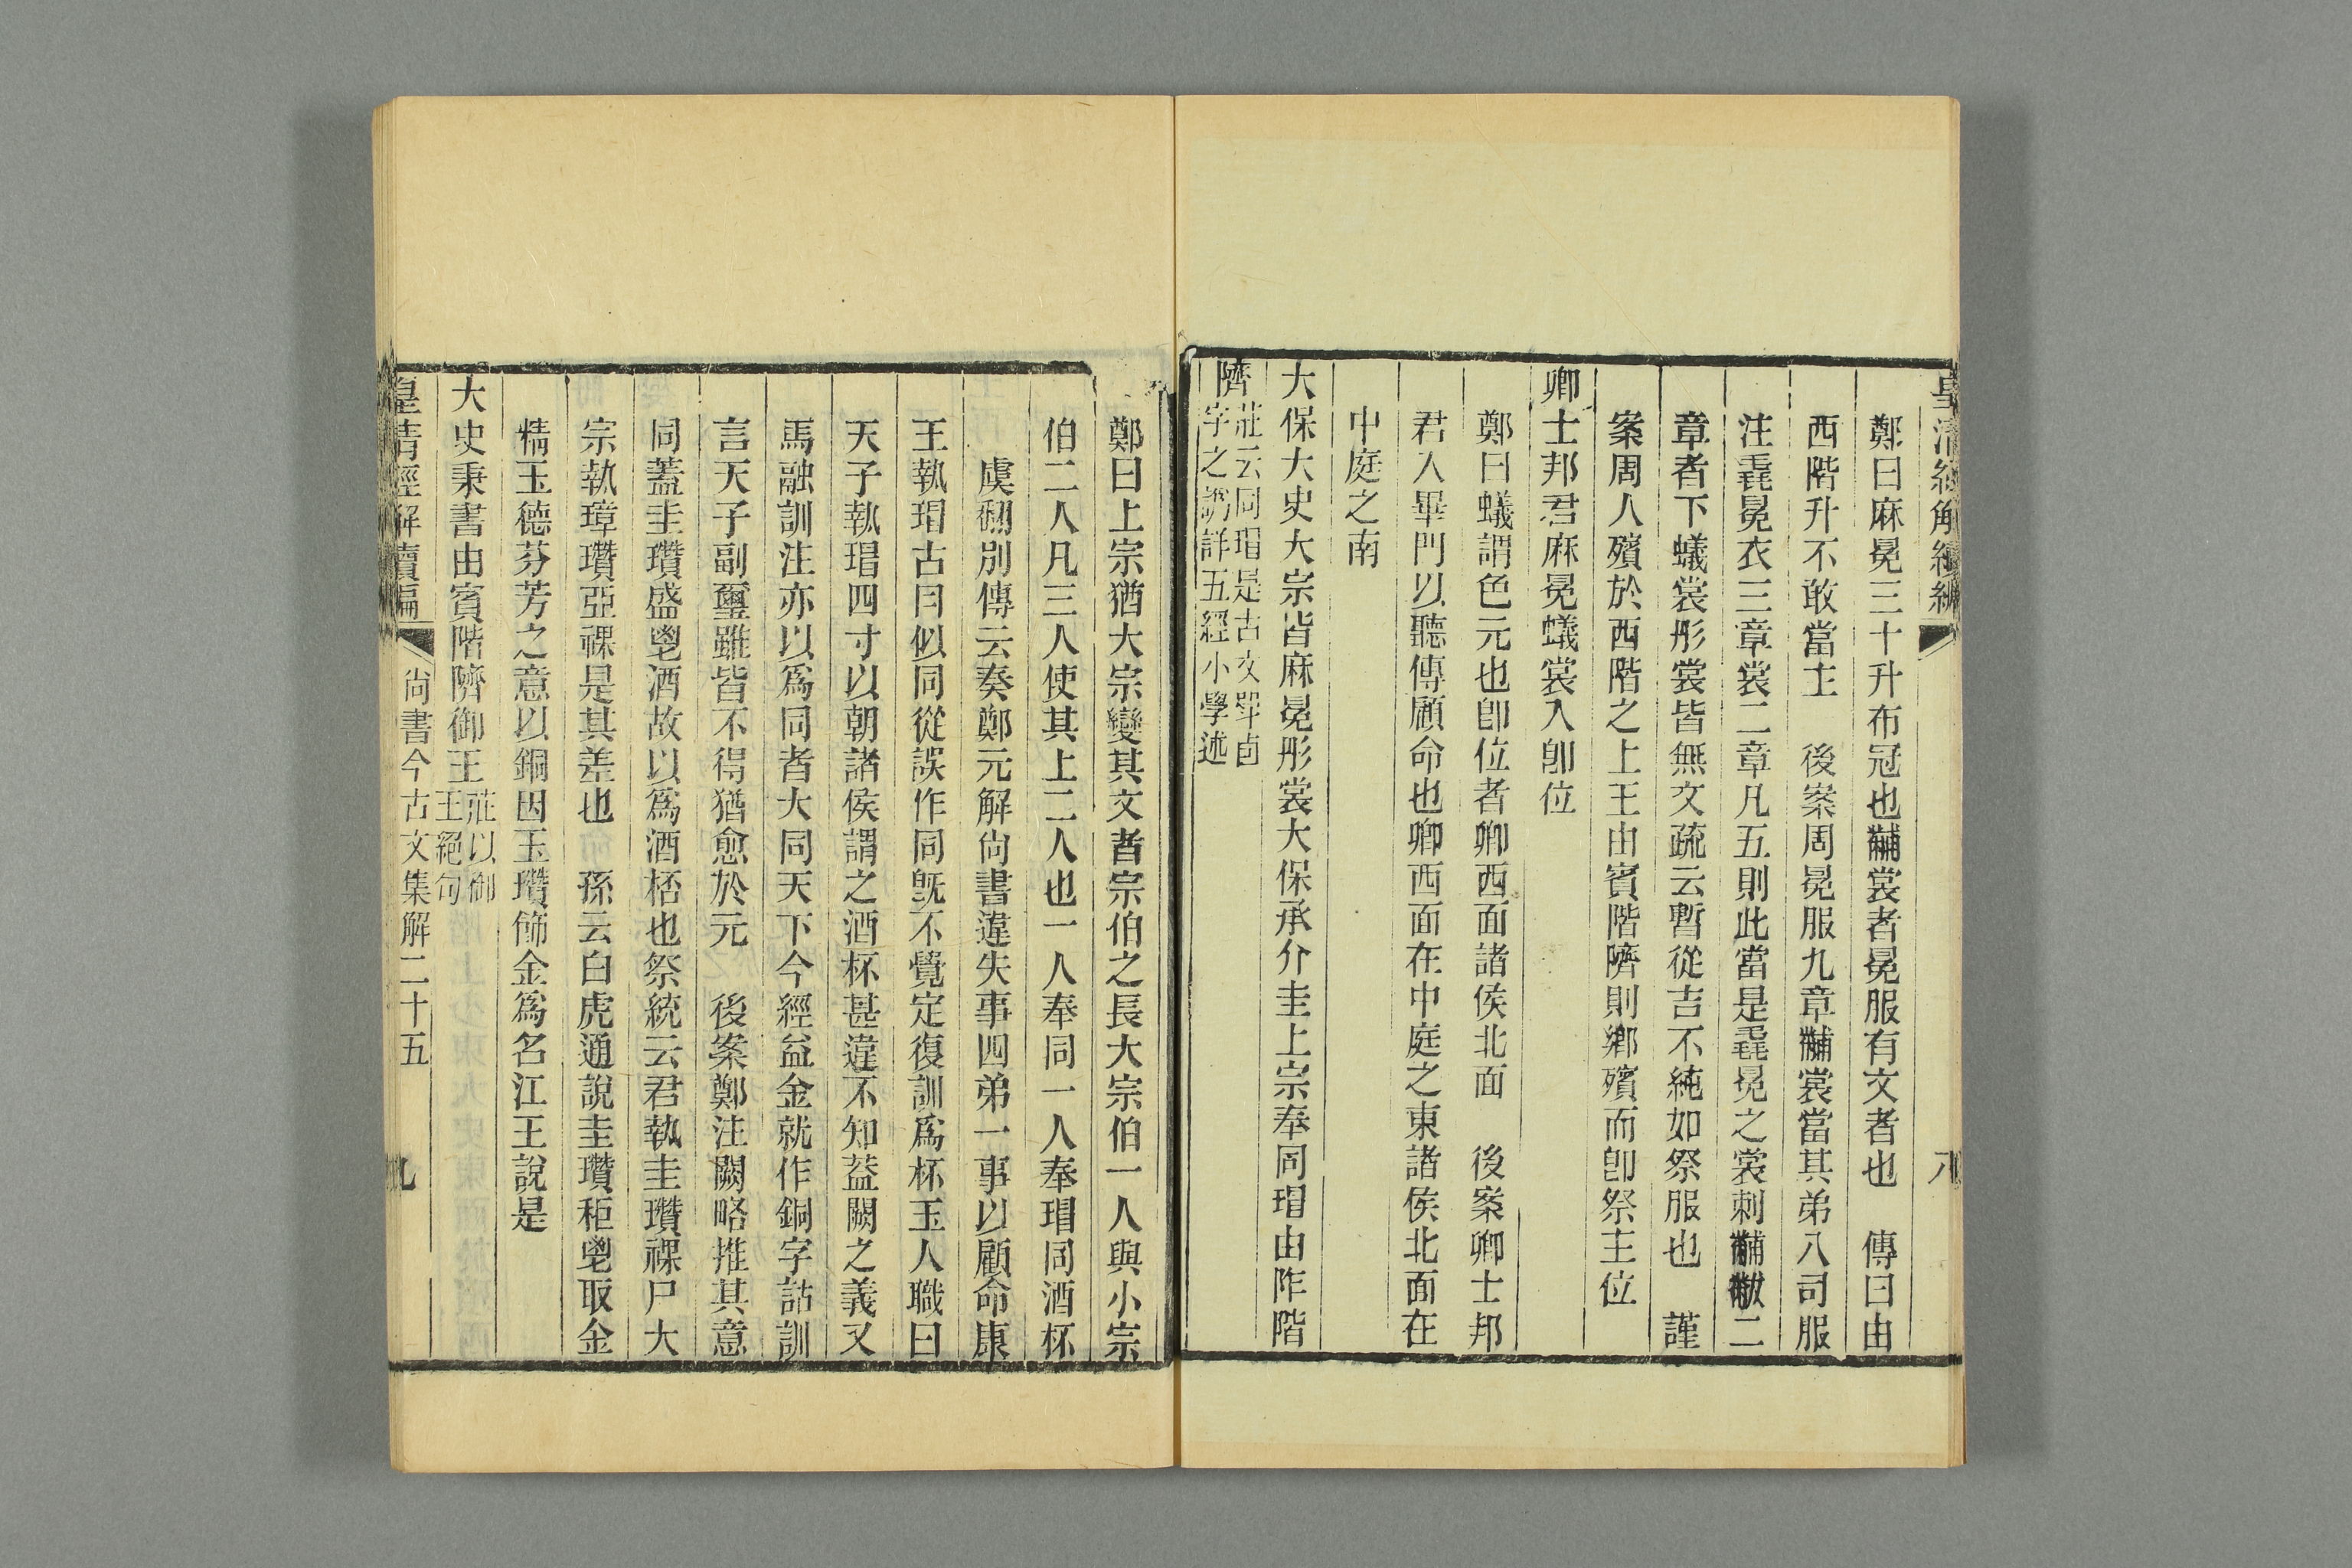 皇清經解續編
八
鄭曰麻冕三十升布冠也黼裳者冕服有文者也　傳曰由
西階升不敢當主　後案周冕服九章黼裳當其弟八司服
注毳冕衣三章裳二章凡五則此當是毳冕之裳刺黼黻二
章者下蟻裳彤裳皆無文疏云暫從吉不純如祭服也　謹
案周人殯於西階之上王由賓階隮則鄉殯而卽祭主位
卿士邦君麻冕蟻裳入卽位
鄭曰蟻謂色元也卽位者卿西面諸侯北面　後案卿士邦
君入畢門以聽傳顧命也卿西面在中庭之東諸侯北面在
中庭之南
大保大史大宗皆麻冕彤裳大保承介圭上宗奉同瑁由阼階
隮莊云同瑁是古文斝卣
字之譌詳五經小學述
鄭曰上宗猶大宗變其文者宗伯之長大宗伯一人與小宗
伯二人凡三人使其上二人也一人奉同一人奉瑁同酒杯
虞翻別傳云奏鄭元解尙書違失事四弟一事以顧命康
王執瑁古冃似同從誤作同旣不覺定復訓爲杯玉人職曰
天子執瑁四寸以朝諸侯謂之酒杯甚違不知葢闕之義又
馬融訓注亦以爲同者大同天下今經益金就作銅字詁訓
言天子副璽雖皆不得猶愈於元　後案鄭注闕略推其意
同蓋圭瓚盛鬯酒故以爲酒桮也祭統云君執圭瓚祼尸大
宗執璋瓚亞祼是其差也　孫云白虎通說圭瓚秬鬯取金
精玉德芬芳之意以銅因玉瓚飾金爲名江王說是
大史秉書由賓階隮御王莊以御
王絕句
皇清經解續編
尙書今古文集解二十五
九